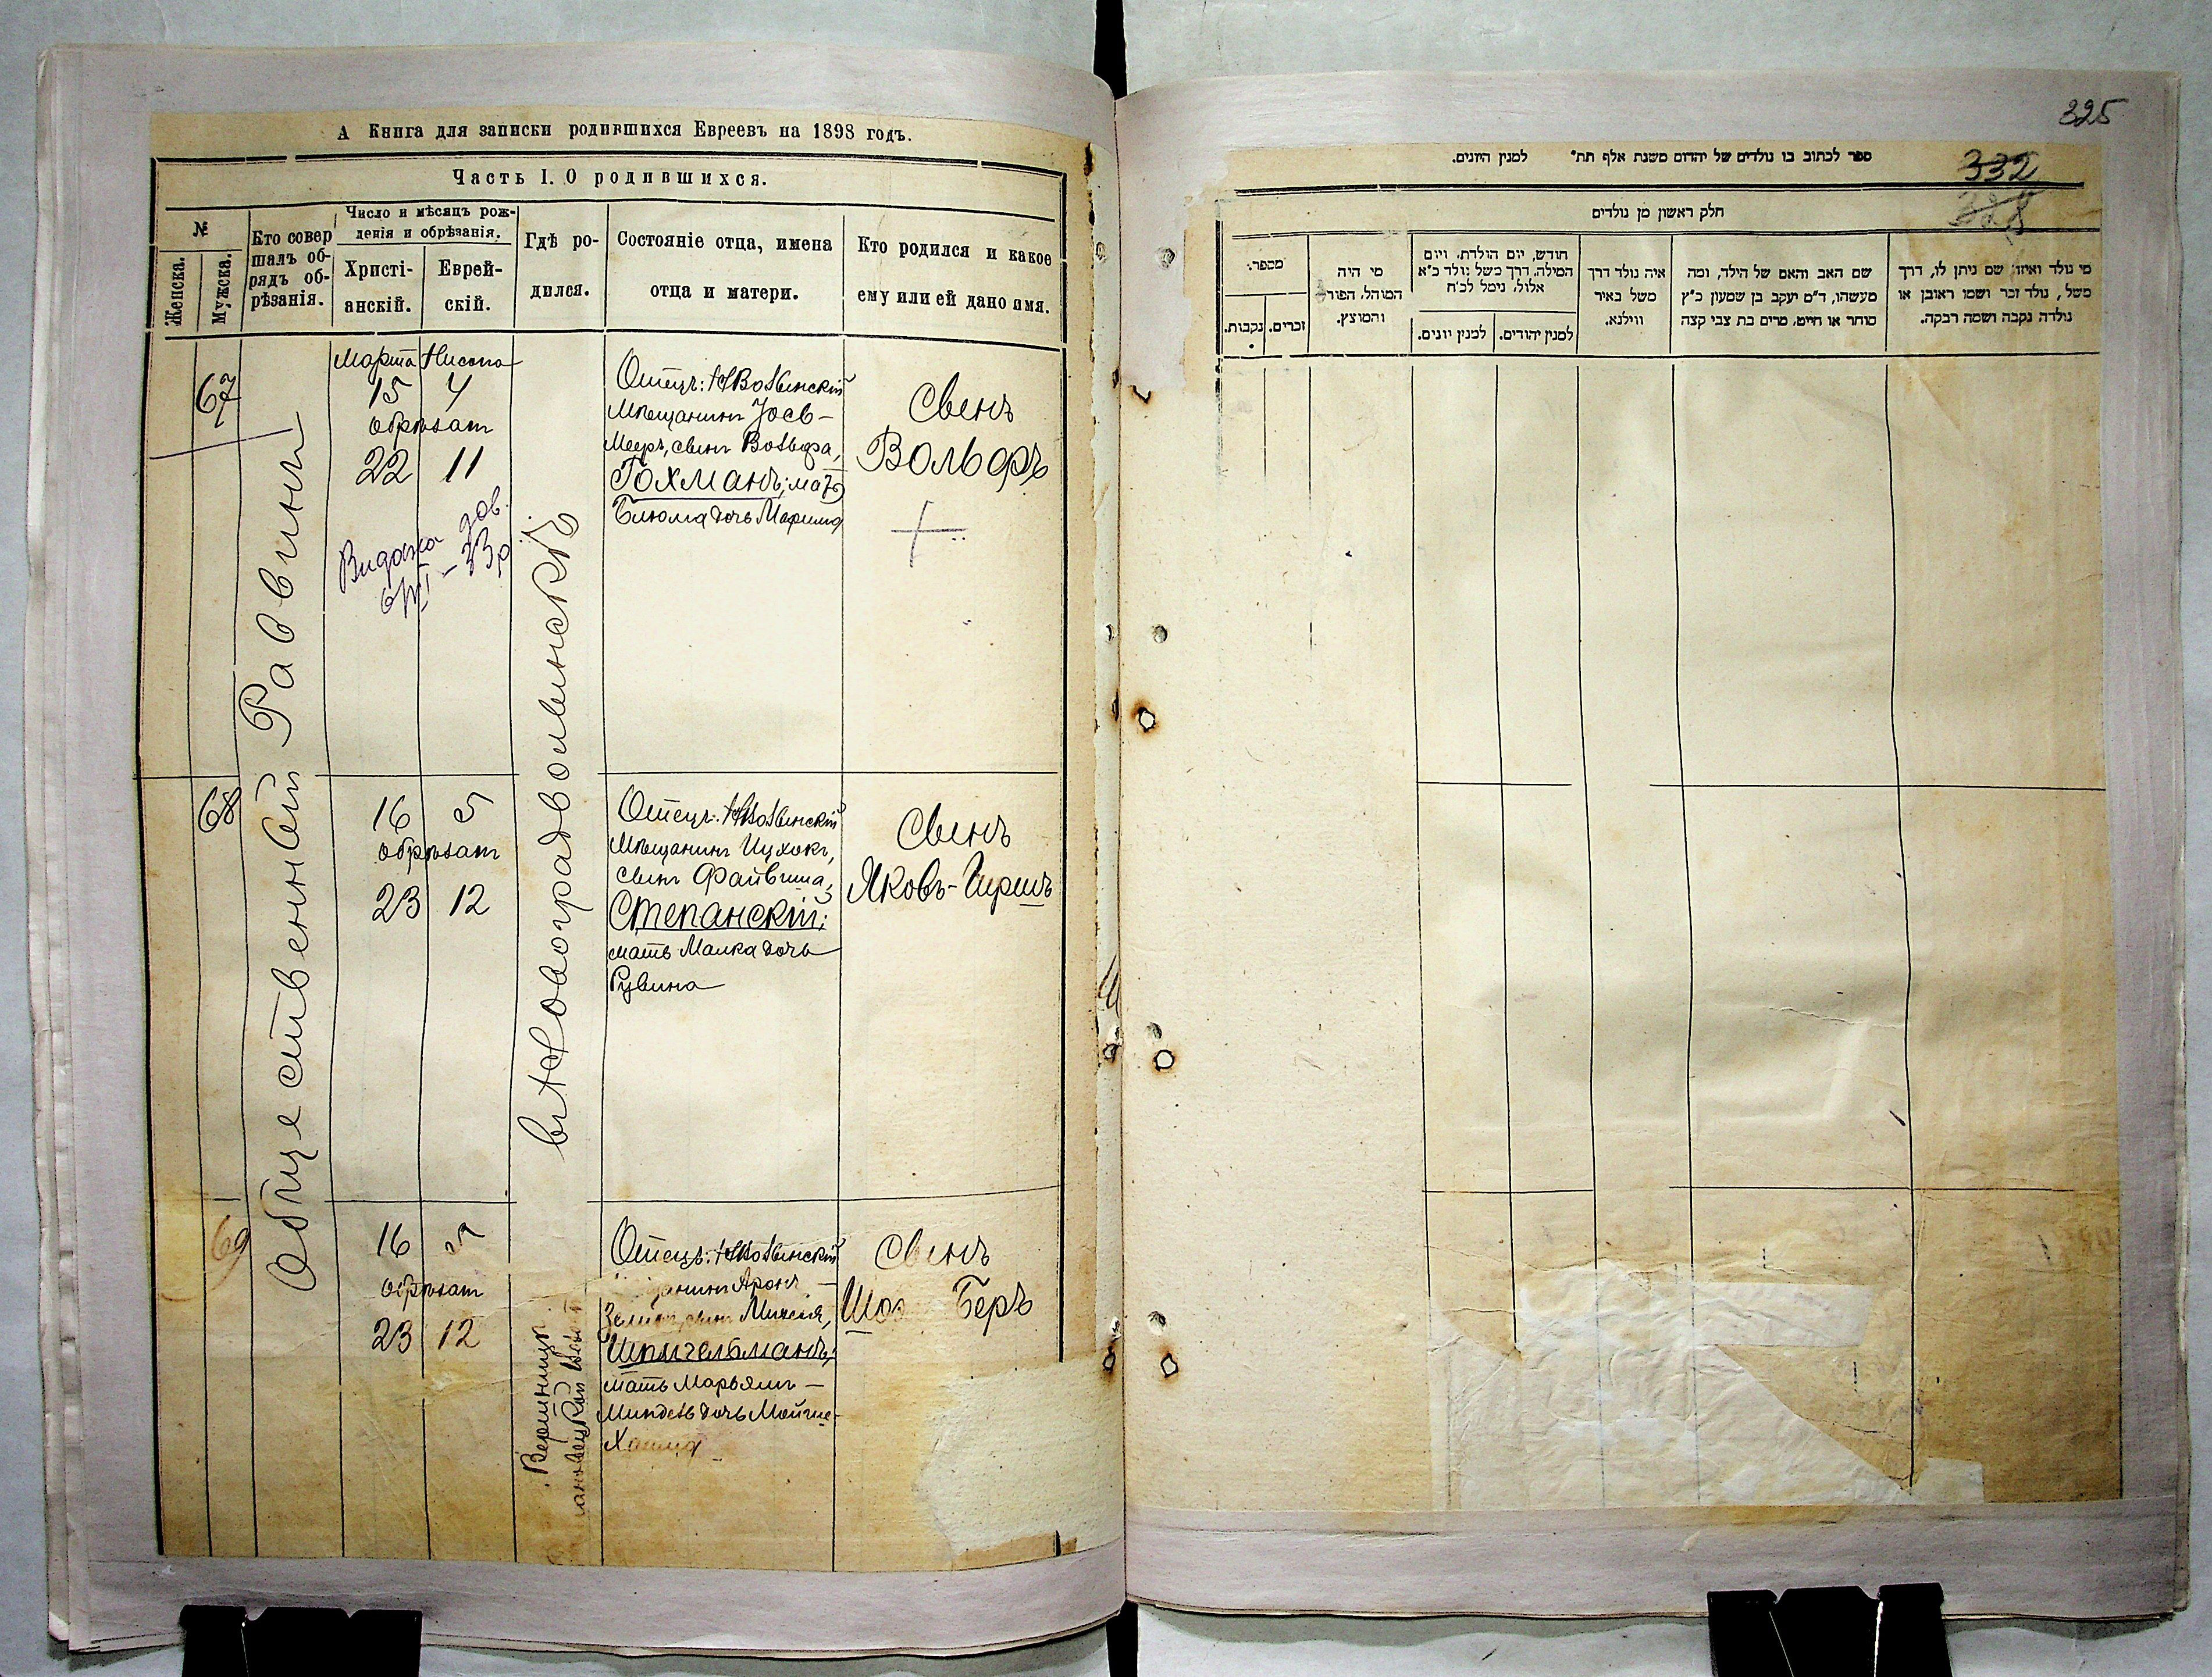 А Книга для записки родившихся Евреевъ на 1898 годъ.
Часть I. О родившихся.
№
Женска.
Мужска.
Кто совер
шалъ об-
рядъ об-
рѣзанія.
Число и мѣсяцъ рож-
денія и обрѣзанія.
Христі-
анскій.
Еврей-
скій.
Гдѣ ро-
дился.
Состояніе отца, имена
отца и матери.
Кто родился и какое
ему или ей дано имя.
Общественный Раввинъ
въ Новоградволынскѣ
67
Марта Нисона
15 4
обрѣзан
22 11
Видана дов.
Отецъ: НВолынскій
Мѣщанинъ Іось-
Мееръ, сынъ Вольфа,
Гохманъ; мать
Блюма дочь Марима
Сынъ
Вольфъ
68
16 5
обрѣзан
23 12
Отецъ: НВолынскій
Мѣщанинъ Ицхокъ,
сынъ Файвиша,
Степанскій;
мать Малка дочь
Рувина
Сынъ
Яковъ-Гиршъ
69
16 5
обрѣзан
23 12
Отецъ: НВолынскій
Аронъ-
сынъ Михеля,
Шпигельманъ;
мать Марьямъ-
Миндель дочь Мойше-
Хаима
Сынъ
Беръ
325
332
328
ספר לכתוב בו נולדים של יהדום משנת אלף תת״ למנין היונים.
חלק ראשון מן נולדים
מספר.
נקבות.
זכרים.
מי היה
המוהל, הפורע
והמוצץ.
חודש, יום הולדת, ויום
המילה, דרך משל נולד כ״א
אלול, נימל לכ״ח
למנין יונים.
למנין יהודים.
איה נולד דרך
משל באיר
ווילנא.
שם האב והאם של הילד, ומה
מעשהו, ד״ם יעקב בן שמעון כ״ץ
סוחר או חייט, מרים בת צבי קצה
מי נולד ואיזו שם ניתן לו, דרך
משל, נולד זכר ושמו ראובן או
נולדה נקבה ושמה רבקה.